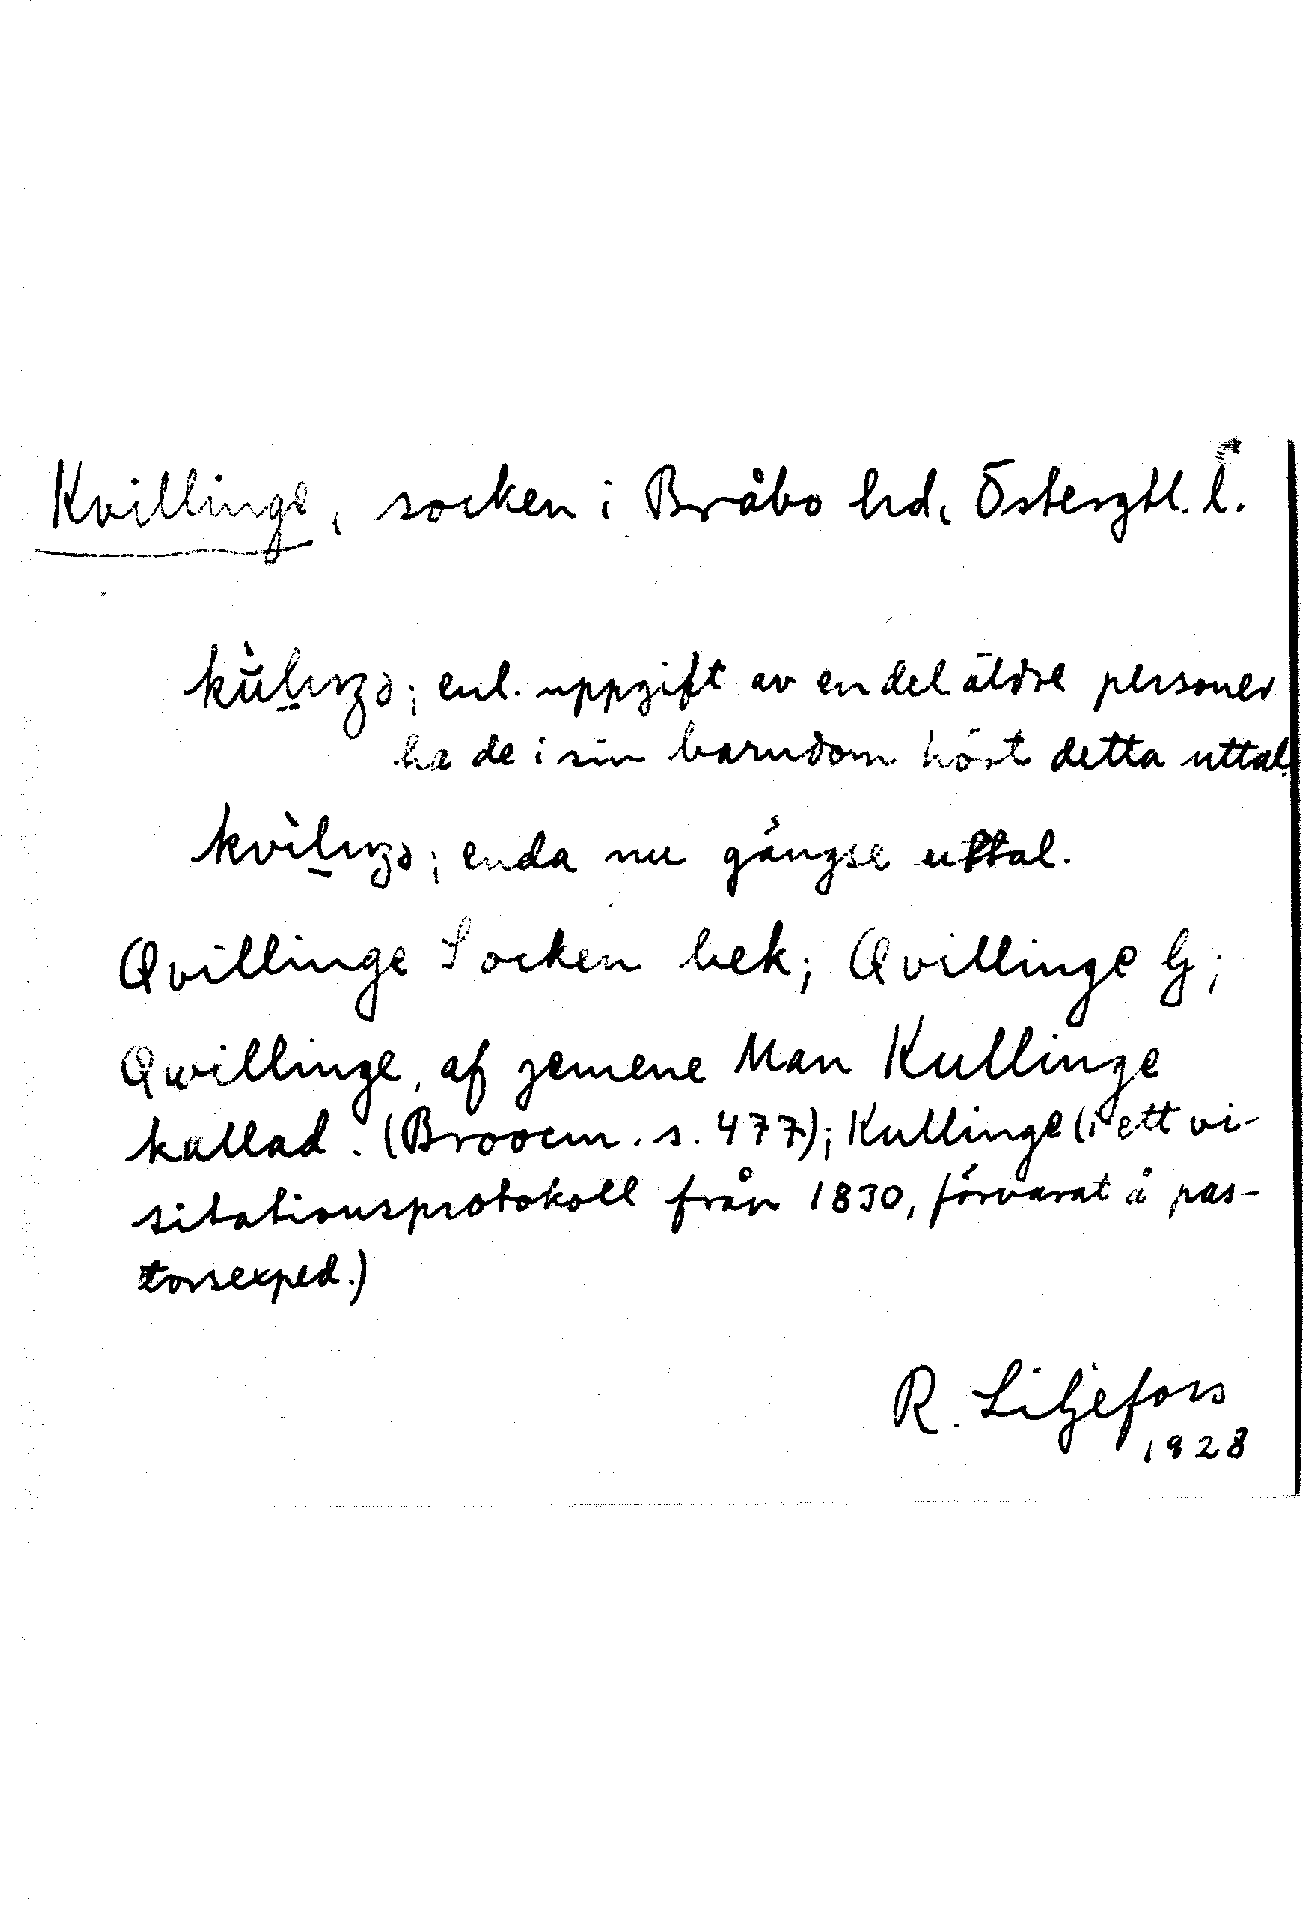 Kvillinge, socken i Bråbo hd, Östergtl. l.
enl. uppgift av en del äldre personer
ha de i sin barndom hört detta uttal.
enda nu gängse uttal.
Qvillinge Socken bek; Qvillinge G;
Qwillinge, af gemene Man Kullinge
kallad. (Broocm. s. 477); Kullinge (i ett vi-
sitationsprotokoll från 1830, förvarat å pas-
torsexped.)
R. Liljefors
1928